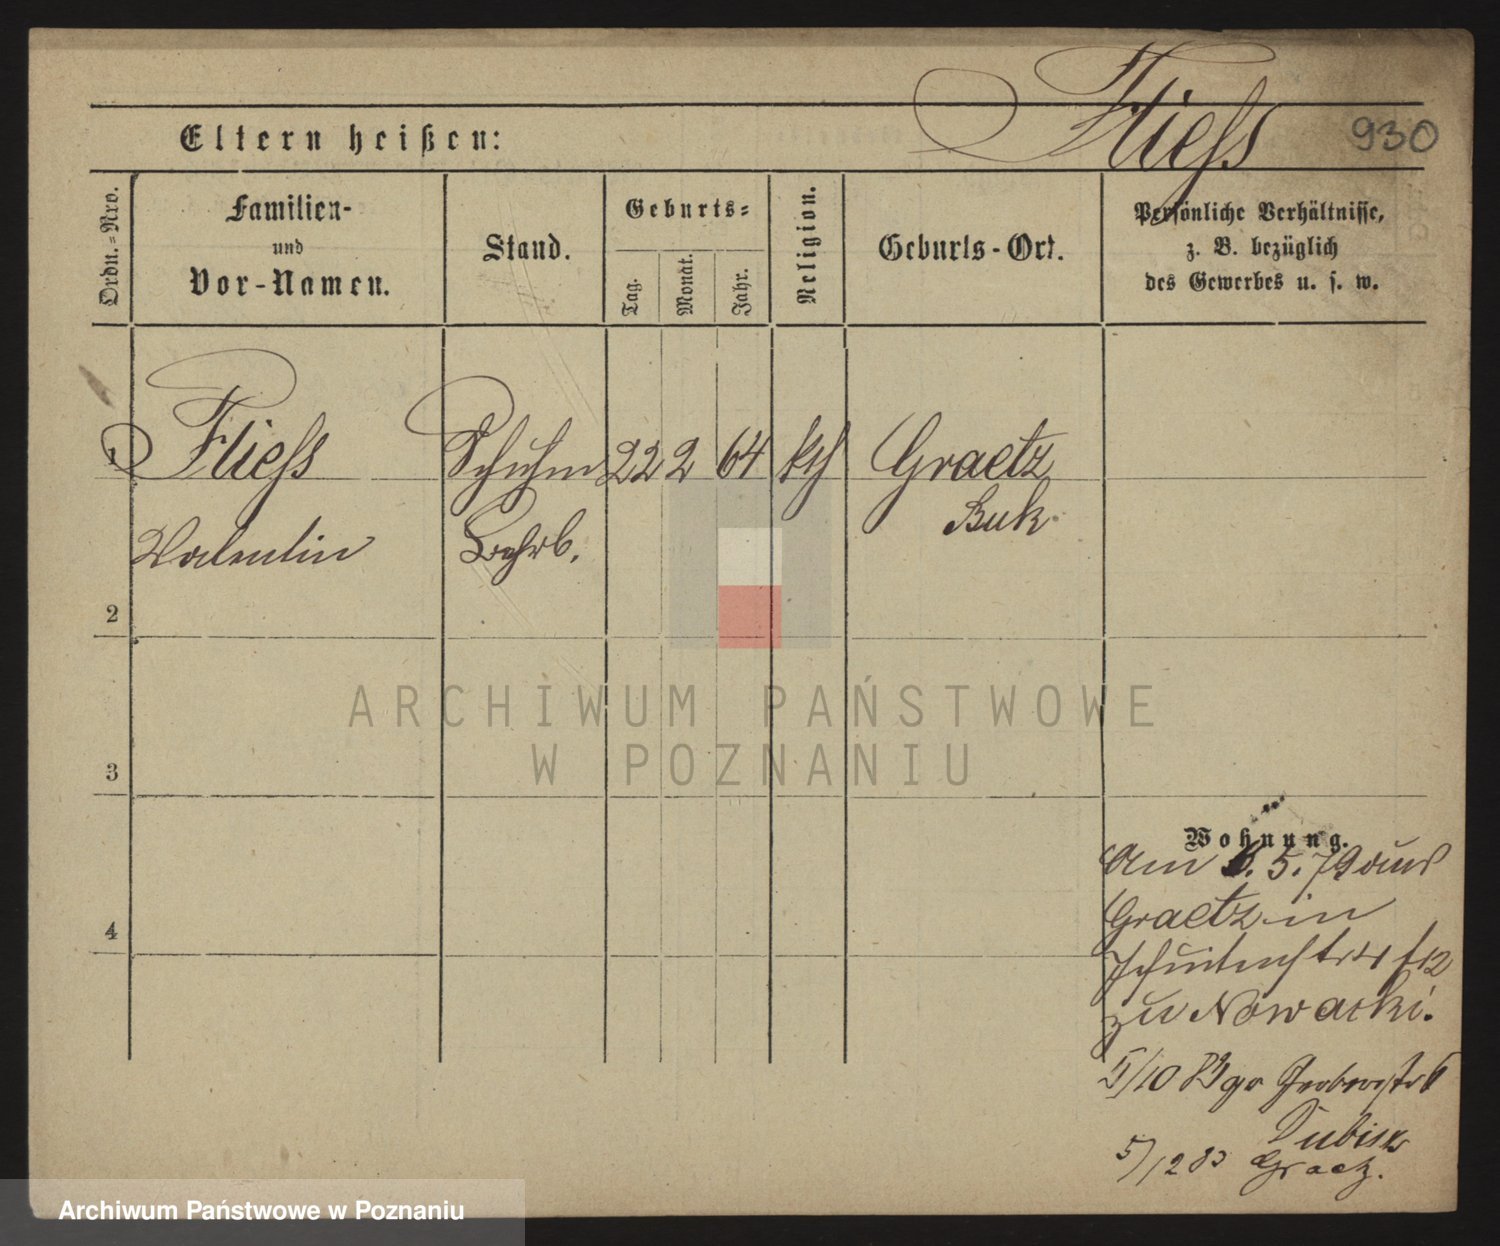 Fliess
930
Eltern heißen:
Ordn.=Nro.
Familien-
und
Vor-Namen.
Stand.
Geburts=
Tag.
Monat.
Jahr.
Religion.
Geburts-Ort.
Persönliche Verhältnisse,
z. B. bezüglich
des Gewerbes u. s. w.
1 Fliess Schuhm 22 2 64 kth Graetz
Buk
Valentin Lehrb.
2
3
4
ARCHIWUM PAŃSTWOWE
W POZNANIU
Wohnung.
Am 5. 79 aus
Graetz in
Jesuitenstr 12
zu Nowacki.
5/10 Gr Gerberstr 6
Dubisz
5/12 83 Graetz.
Archiwum Państwowe w Poznaniu